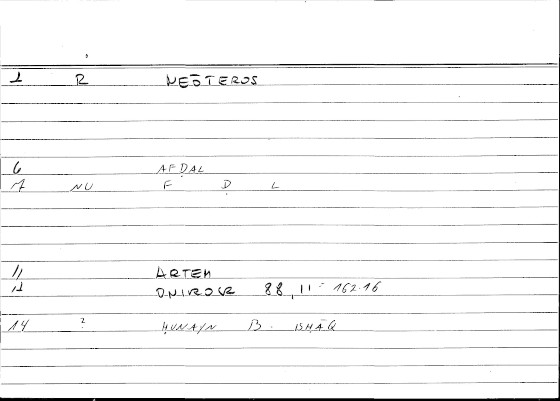 1 R NEŌTEROS
6 AFḌAL
7 NU F Ḍ L
11 ARTEM
12 ONIROCR 88,11-162.16
14 ? ḤUNAYN B. ISḤĀQ